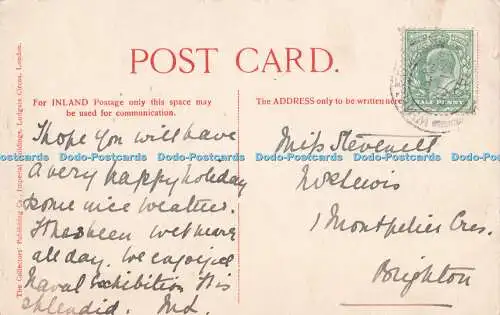 POST CARD.
For INLAND Postage only this space may
be used for communication.
The ADDRESS only to be written here
HALF PENNY
The Collectors' Publishing Co., Imperial Buildings, Ludgate Circus, London.
I hope you will have
a very happy holiday
some nice weather.
It has been wet here
all day. We enjoyed
Naval Exhibition It is
splendid. 
Miss
Lewis
1 Montpelier Cres.
Brighton
Dodo-Postcards Dodo-Postcards Dodo-Postcards Dodo-Postcards Dodo-Postcards